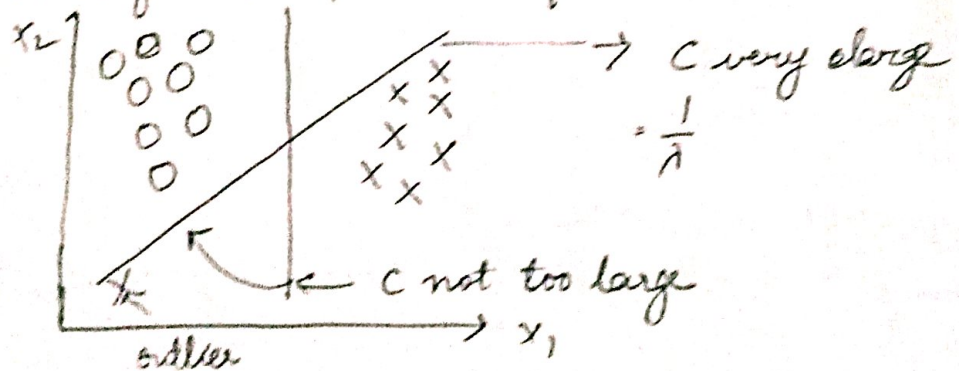 x₂
C very large
= 1/λ
C not too large
x₁
outlier